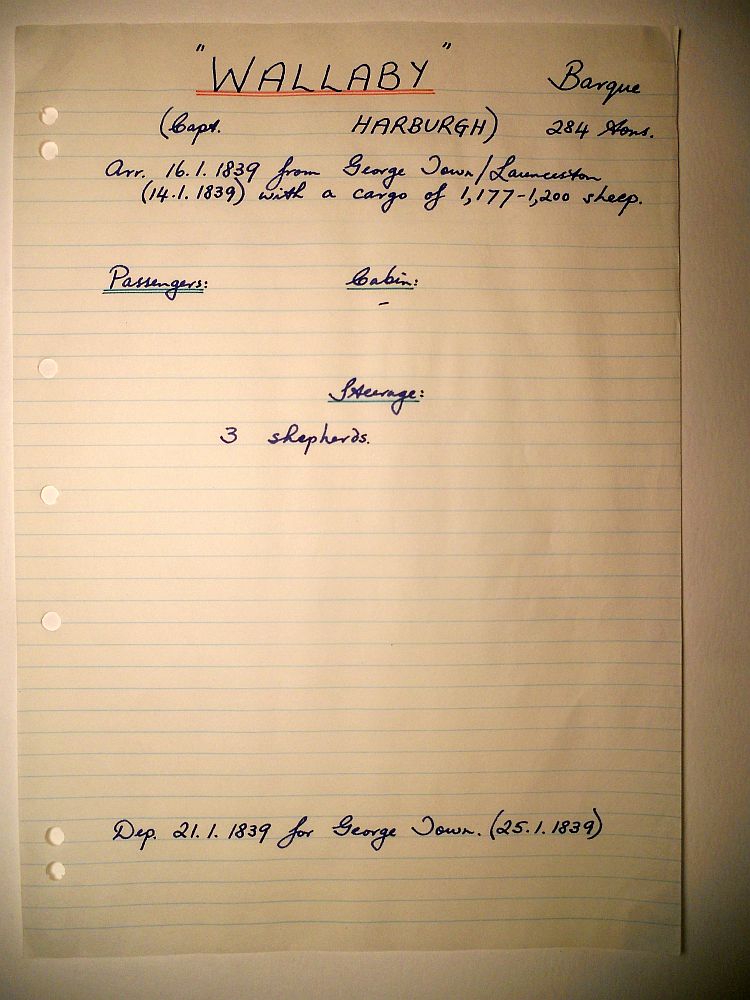 "WALLABY" Barque
(Capt. HARBURGH) 284 tons.
Arr. 16.1.1839 from George Town/Launceston
(14.1.1839) with a cargo of 1,177-1,200 sheep.
Passengers: Cabin:
-
Steerage:
3 shepherds.
Dep. 21.1.1839 for George Town. (25.1.1839)